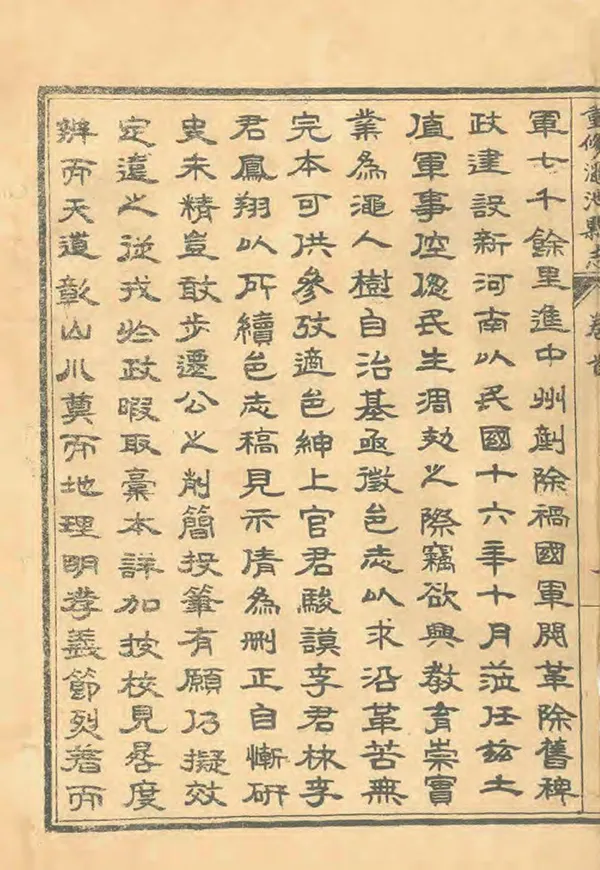 重修澠池縣志 卷首
軍七千餘里進中州剷除禍國軍閥革除舊稗
政建設新河南以民國十六年十月涖任玆土
值軍事倥傯民生凋劾之際竊欲興教育崇實
業為澠人樹自治基亟徵邑志以求沿革苦無
完本可供參攷適邑紳上官君駿謨李君李
君鳳翔以所續邑志稿見示倩為刪正自慚研
史未精豈敢步遷公之削簡投筆有願乃擬效
定遠之從戎於政暇取稾本詳加按校見晷度
辨而天道彰山川奠而地理明孝義節烈著而